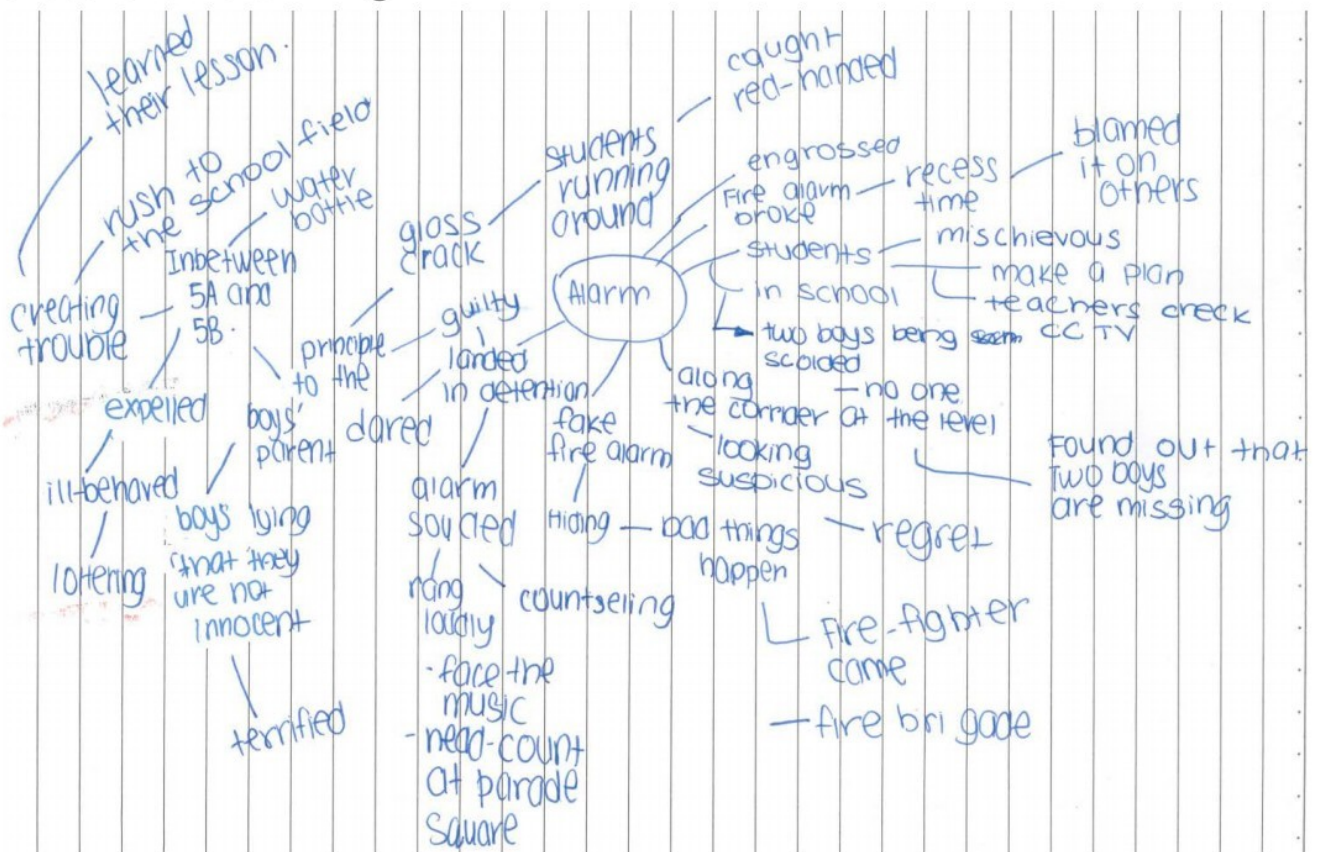 learned
their lesson.
rush to
the school field
water
bottle
Inbetween
5A and
5B.
creating
trouble
expelled
ill-behaved
lotering
boys'
parent
boys lying
that they
are not
innocent
terrified
glass
crack
principle
to the
guilty
landed
in detention
dared
alarm
soucled
rang
loudly
countseling
- face the
music
- head-count
at parade
square
students
running
around
caught
red-handed
Alarm
engrossed
Fire alarm
broke
recess
time
blamed
it on
others
students
mischievous
make a plan
teachers creck
CCTV
in school
two boys being
scolded
along
the corrider at the level
- no one
looking
suspicious
Found out that
Two boys
are missing
fake
fire alarm
Hiding
bad things
happen
regret
Fire-fighter
came
fire brigade